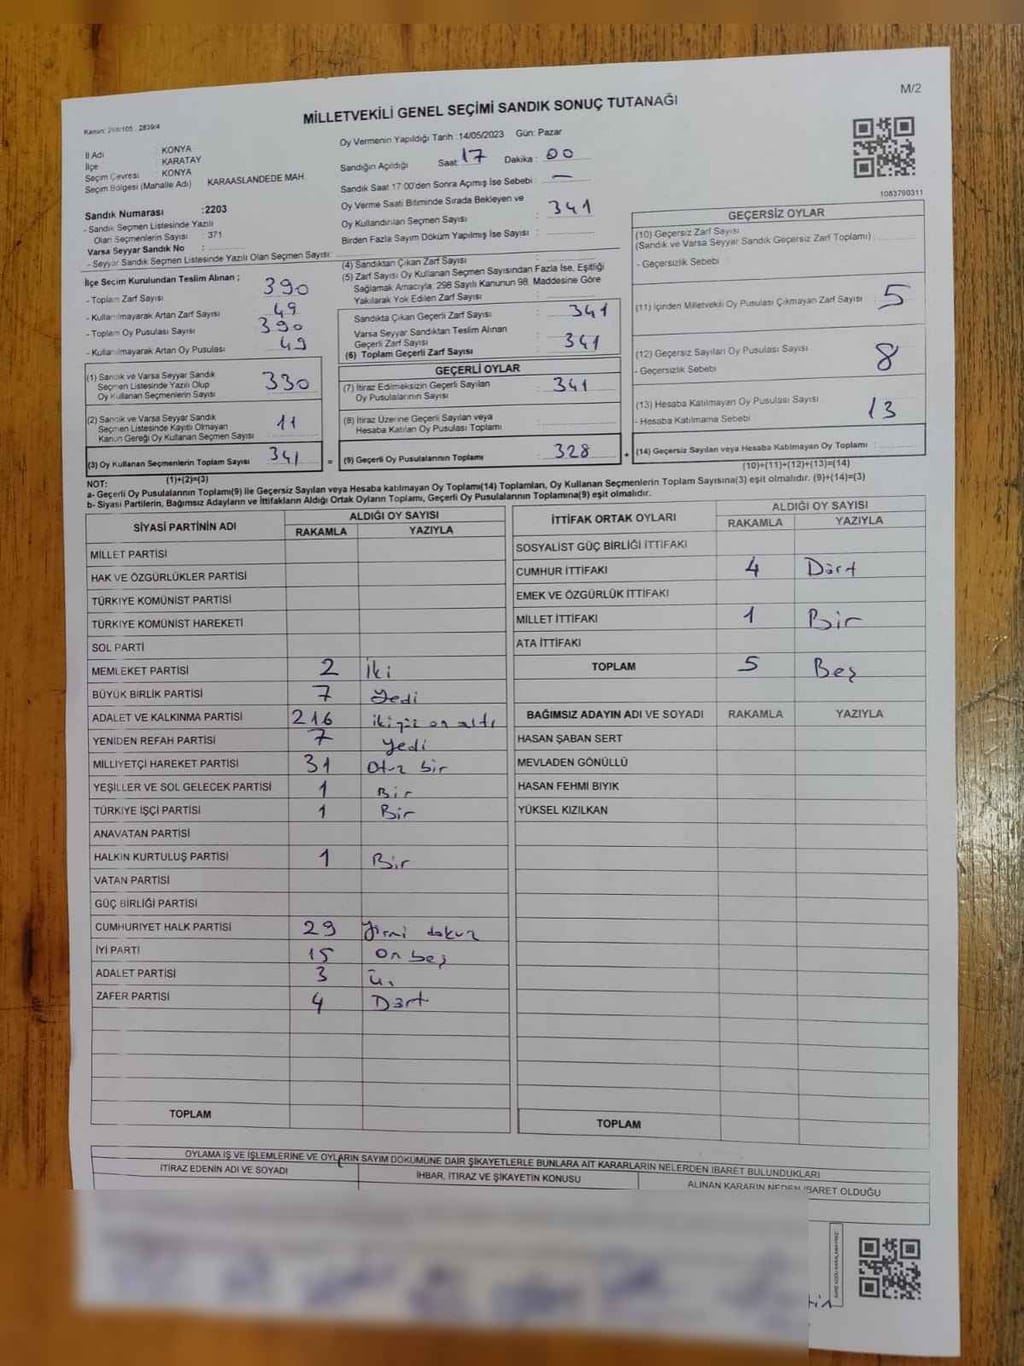 M/2
MİLLETVEKİLİ GENEL SEÇİMİ SANDIK SONUÇ TUTANAĞI
Kanun: 298/105 - 2839/4
İl Adı : KONYA
İlçe : KARATAY
Seçim Çevresi : KONYA
Seçim Bölgesi (Mahalle Adı) KARAASLANDEDE MAH.
Sandık Numarası :2203
- Sandık Seçmen Listesinde Yazılı
Olan Seçmenlerin Sayısı : 371
Varsa Seyyar Sandık No :
- Seyyar Sandık Seçmen Listesinde Yazılı Olan Seçmen Sayısı:
Oy Vermenin Yapıldığı Tarih :14/05/2023 Gün: Pazar
Sandığın Açıldığı Saat: 17 Dakika : 00
Sandık Saat 17:00'den Sonra Açımış İse Sebebi : —
Oy Verme Saati Bitiminde Sırada Bekleyen ve
Oy Kullandırılan Seçmen Sayısı : 341
Birden Fazla Sayım Döküm Yapılmış İse Sayısı :
1083790311
İlçe Seçim Kurulundan Teslim Alınan ;
- Toplam Zarf Sayısı 390
- Kullanılmayarak Artan Zarf Sayısı 49
- Toplam Oy Pusulası Sayısı 390
- Kullanılmayarak Artan Oy Pusulası 49
(1) Sandık ve Varsa Seyyar Sandık
Seçmen Listesinde Yazılı Olup
Oy Kullanan Seçmenlerin Sayısı 330
(2) Sandık ve Varsa Seyyar Sandık
Seçmen Listesinde Kayıtlı Olmayan
Kanun Gereği Oy Kullanan Seçmen Sayısı 11
(3) Oy Kullanan Seçmenlerin Toplam Sayısı 341 =
(1)+(2)=(3)
(4) Sandıktan Çıkan Zarf Sayısı :
(5) Zarf Sayısı Oy Kullanan Seçmen Sayısından Fazla İse, Eşitliği
Sağlamak Amacıyla, 298 Sayılı Kanunun 98. Maddesine Göre
Yakılarak Yok Edilen Zarf Sayısı :
Sandıkta Çıkan Geçerli Zarf Sayısı : 341
Varsa Seyyar Sandıktan Teslim Alınan
Geçerli Zarf Sayısı : 341
(6) Toplam Geçerli Zarf Sayısı
GEÇERLİ OYLAR
(7) İtiraz Edilmeksizin Geçerli Sayılan
Oy Pusulalarının Sayısı : 341
(8) İtiraz Üzerine Geçerli Sayılan veya
Hesaba Katılan Oy Pusulası Toplamı :
(9) Geçerli Oy Pusulalarının Toplamı : 328 +
GEÇERSİZ OYLAR
(10) Geçersiz Zarf Sayısı
(Sandık ve Varsa Seyyar Sandık Geçersiz Zarf Toplamı) :
- Geçersizlik Sebebi
(11) İçinden Milletvekili Oy Pusulası Çıkmayan Zarf Sayısı : 5
(12) Geçersiz Sayılan Oy Pusulası Sayısı
- Geçersizlik Sebebi : 8
(13) Hesaba Katılmayan Oy Pusulası Sayısı
- Hesaba Katılmama Sebebi : 13
(14) Geçersiz Sayılan veya Hesaba Katılmayan Oy Toplamı :
(10)+(11)+(12)+(13)=(14)
NOT:
a- Geçerli Oy Pusulalarının Toplamı(9) ile Geçersiz Sayılan veya Hesaba katılmayan Oy Toplamı(14) Toplamları, Oy Kullanan Seçmenlerin Toplam Sayısına(3) eşit olmalıdır. (9)+(14)=(3)
b- Siyasi Partilerin, Bağımsız Adayların ve İttifakların Aldığı Ortak Oyların Toplamı, Geçerli Oy Pusulalarının Toplamına(9) eşit olmalıdır.
SİYASİ PARTİNİN ADI ALDIĞI OY SAYISI
RAKAMLA YAZIYLA
MİLLET PARTİSİ
HAK VE ÖZGÜRLÜKLER PARTİSİ
TÜRKİYE KOMÜNİST PARTİSİ
TÜRKİYE KOMÜNİST HAREKETİ
SOL PARTİ
MEMLEKET PARTİSİ 2 İki
BÜYÜK BİRLİK PARTİSİ 7 Yedi
ADALET VE KALKINMA PARTİSİ 216 ikiyüz on altı
YENİDEN REFAH PARTİSİ 7 Yedi
MİLLİYETÇİ HAREKET PARTİSİ 31 Otuz bir
YEŞİLLER VE SOL GELECEK PARTİSİ 1 Bir
TÜRKİYE İŞÇİ PARTİSİ 1 Bir
ANAVATAN PARTİSİ
HALKIN KURTULUŞ PARTİSİ 1 Bir
VATAN PARTİSİ
GÜÇ BİRLİĞİ PARTİSİ
CUMHURİYET HALK PARTİSİ 29 Yirmi dokuz
İYİ PARTİ 15 On beş
ADALET PARTİSİ 3 Üç
ZAFER PARTİSİ 4 Dört
TOPLAM
İTTİFAK ORTAK OYLARI ALDIĞI OY SAYISI
RAKAMLA YAZIYLA
SOSYALİST GÜÇ BİRLİĞİ İTTİFAKI
CUMHUR İTTİFAKI 4 Dört
EMEK VE ÖZGÜRLÜK İTTİFAKI
MİLLET İTTİFAKI 1 Bir
ATA İTTİFAKI
TOPLAM 5 Beş
BAĞIMSIZ ADAYIN ADI VE SOYADI RAKAMLA YAZIYLA
HASAN ŞABAN SERT
MEVLADEN GÖNÜLLÜ
HASAN FEHMİ BIYIK
YÜKSEL KIZILKAN
TOPLAM
OYLAMA İŞ VE İŞLEMLERİNE VE OYLARIN SAYIM DÖKÜMÜNE DAİR ŞİKAYETLERLE BUNLARA AİT KARARLARIN NELERDEN İBARET BULUNDUKLARI
İTİRAZ EDENİN ADI VE SOYADI İHBAR, İTİRAZ VE ŞİKAYETİN KONUSU ALINAN KARARIN NEDEN İBARET OLDUĞU